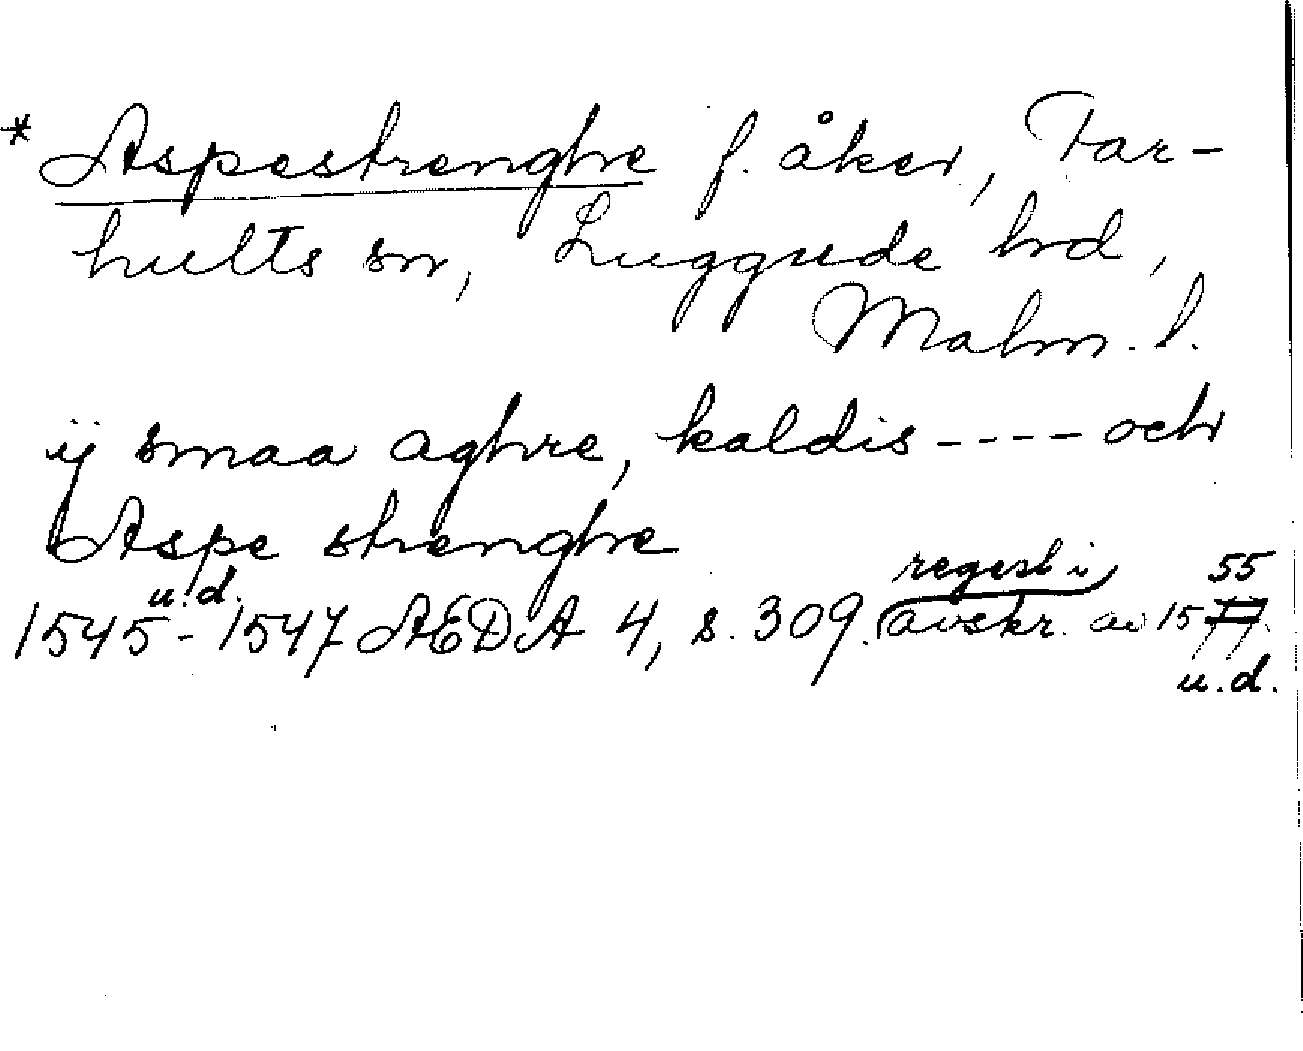 * Aspestrenghe f. åker, Far-
hults sn, Luggude hd,
Malm. l.
ij smaa aghre, kaldis ---- och
Aspe strenghe
regest i 55
u.d.
1545-1547 ÆDA 4, s. 309. (avskr. av 1577.
u.d.